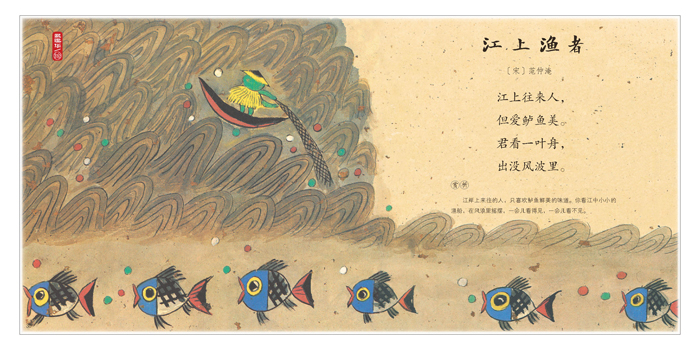 江上渔者
［宋］范仲淹
江上往来人，
但爱鲈鱼美。
君看一叶舟，
出没风波里。
赏析
江岸上来往的人，只喜欢鲈鱼鲜美的味道。你看江中小小的
渔船，在风浪里摇摆，一会儿看得见，一会儿看不见。